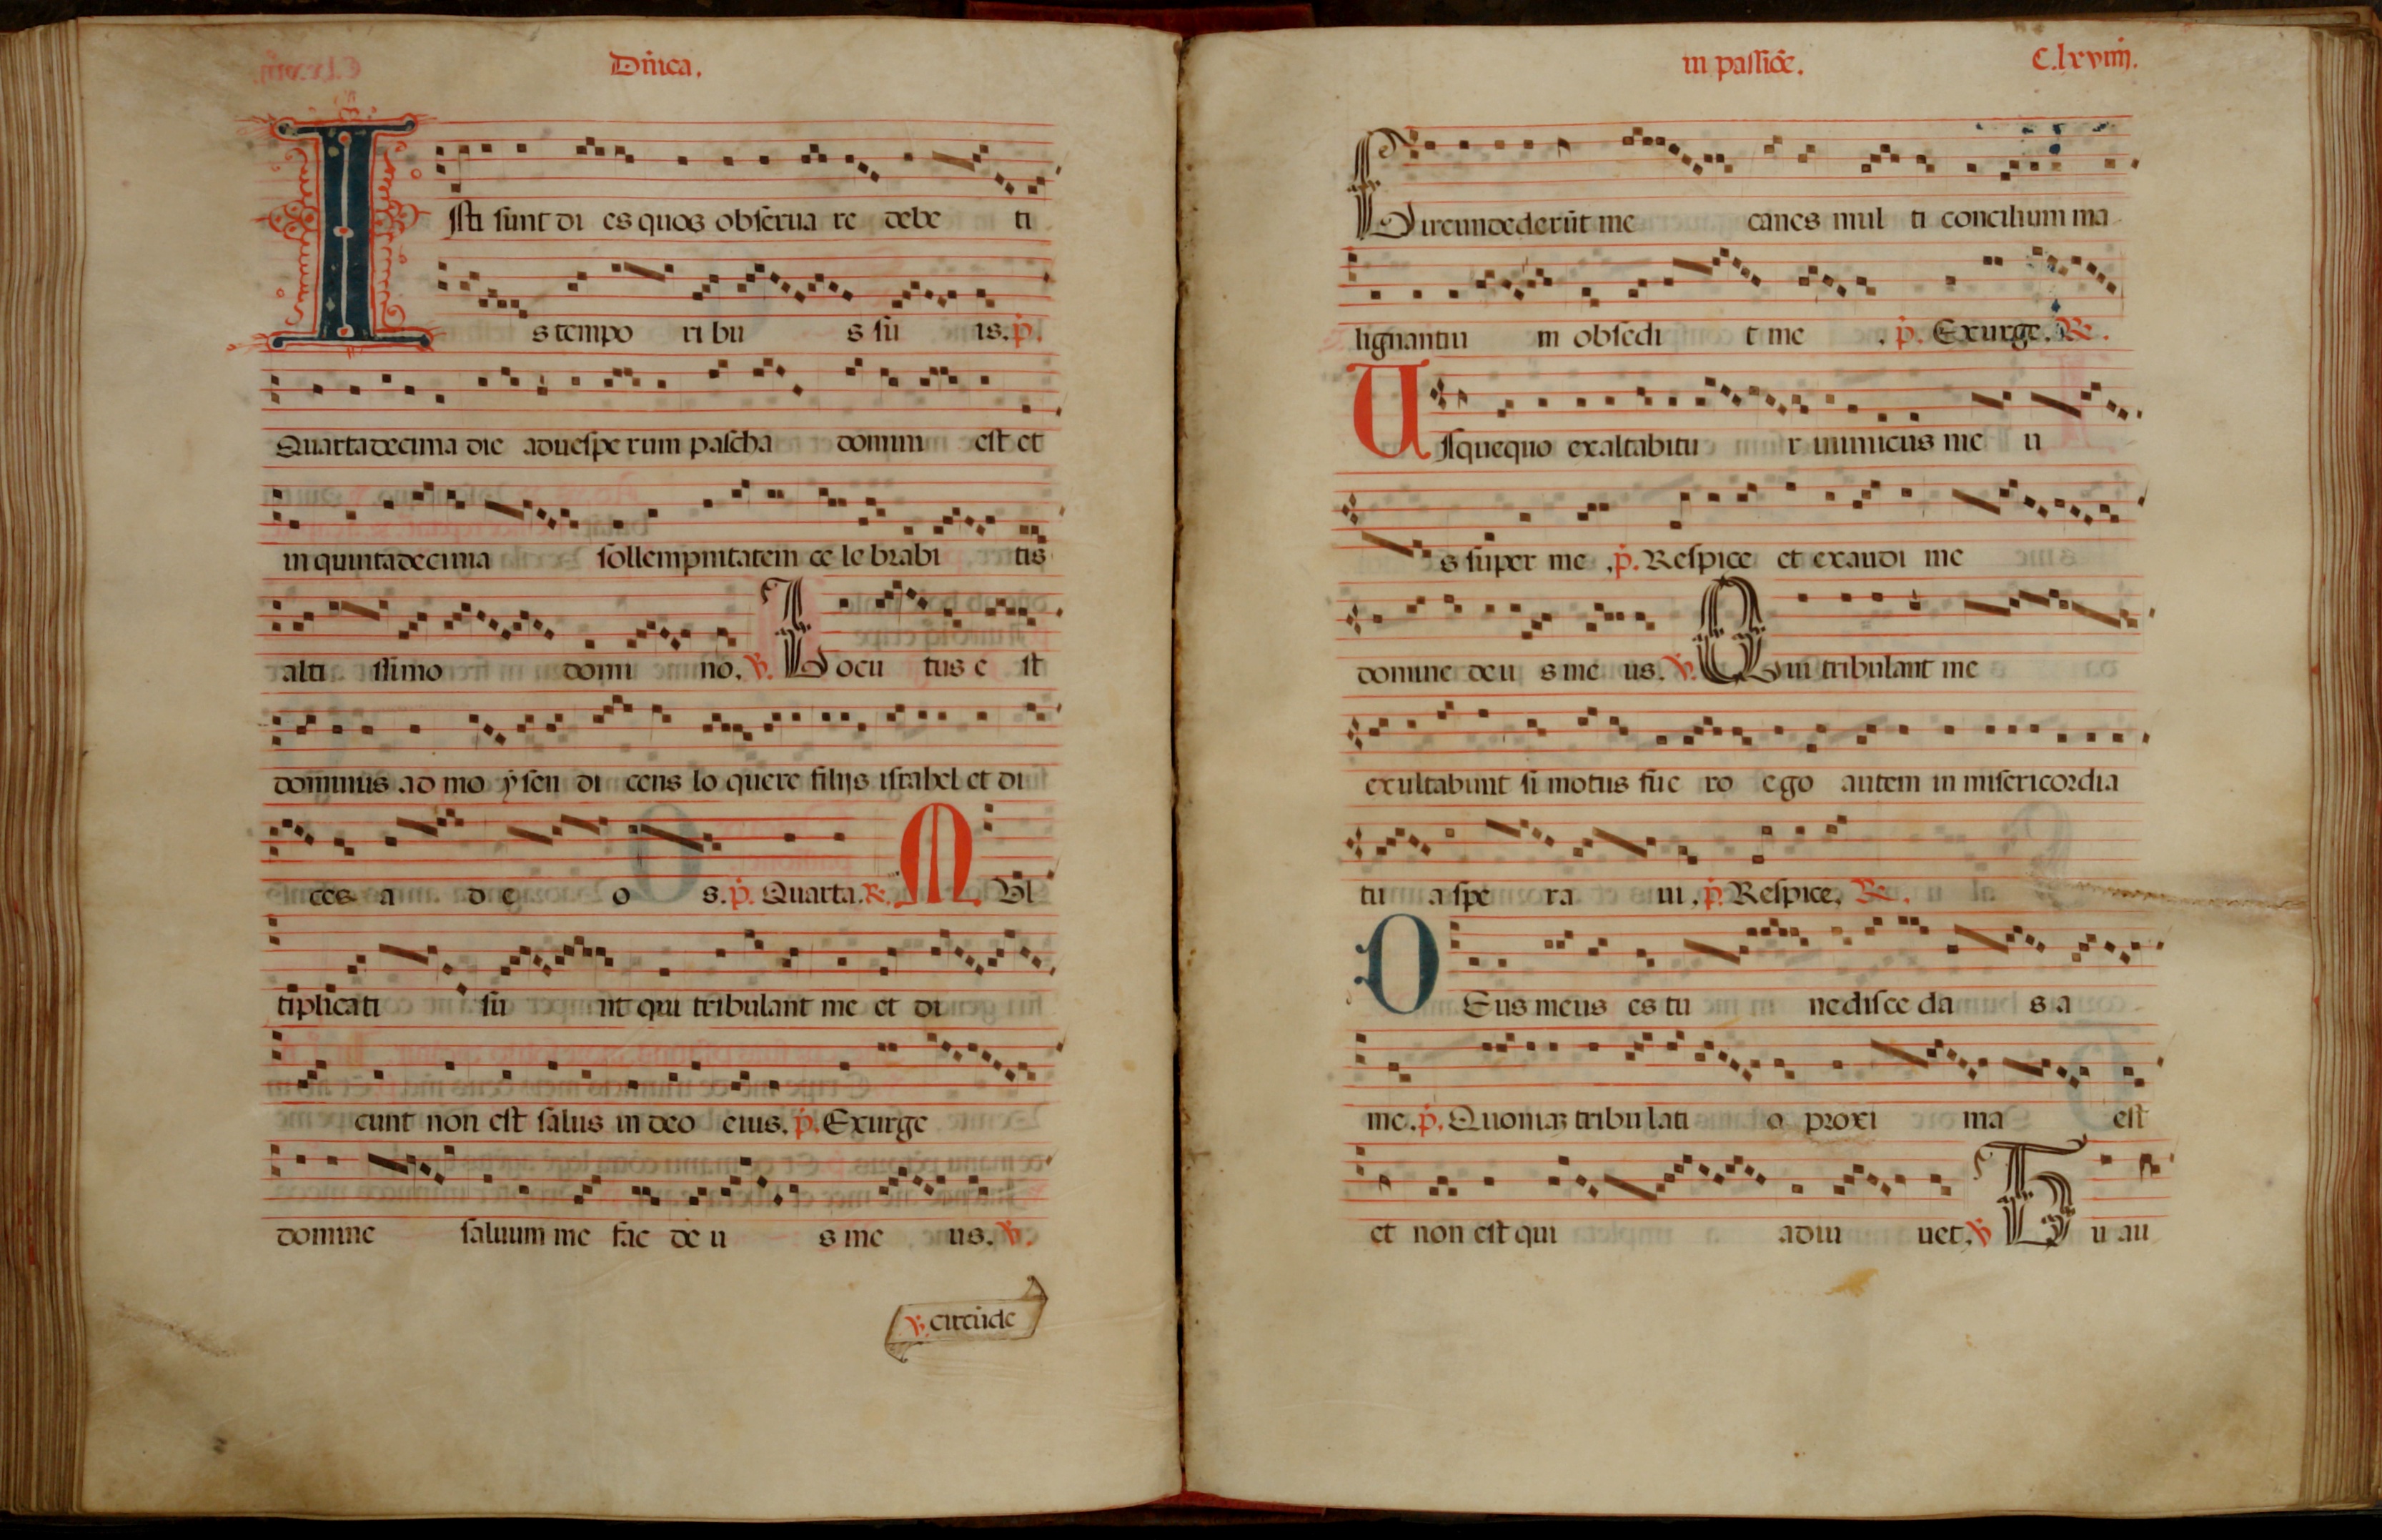 Dn̄ica.
Isti sunt di es quos obserua re debe ti
s tempo ri bu s su is. p̄.
Quartadecima die aduespe rum pascha domini est et
in quintadecima sollempnitatem ce le brabi tis
alti ssimo domi no. ℣. Locu tus e st
dominus ad mo ysen di cens lo quere filijs israhel et di
ces a d e o s. p̄. Quarta. ℟. M Vl
tiplicati su nt qui tribulant me et di
cunt non est salus in deo eius. p̄. Exurge
domine saluum me fac de u s me us. ℣.
℣. circūde
in passiōe. C.lxviiij.
Circundederūt me canes mul ti concilium ma
lignantiu m obsedi t me . p̄. Exurge. ℟.
Vsquequo exaltabitu r inimicus me u
s super me . p̄. Respice et exaudi me
domine deu s me us. ℣. Qui tribulant me
exultabunt si motus fue ro ego autem in misericordia
tu a spe ra ui . p̄. Respice. ℟.
DEus meus es tu ne disce da s a
me. p̄. Quoniaȝ tribu lati o proxi ma est
et non est qui adiu uet. ℣ Tu au